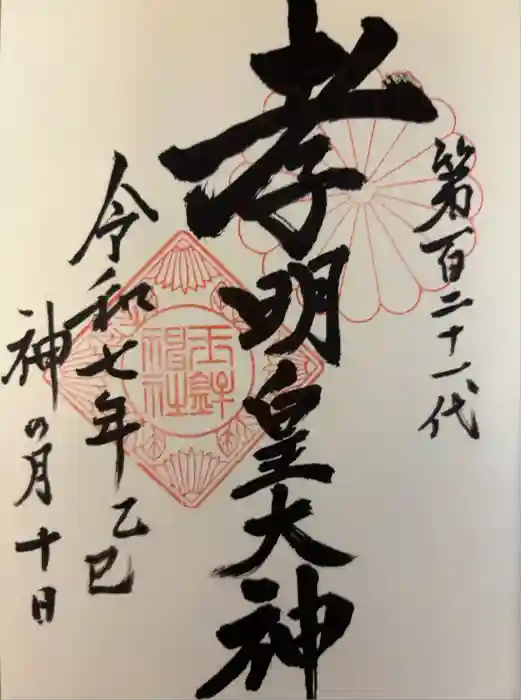 第百二十一代
孝明皇大神
玉鉾神社
令和七年乙巳
神の月十日